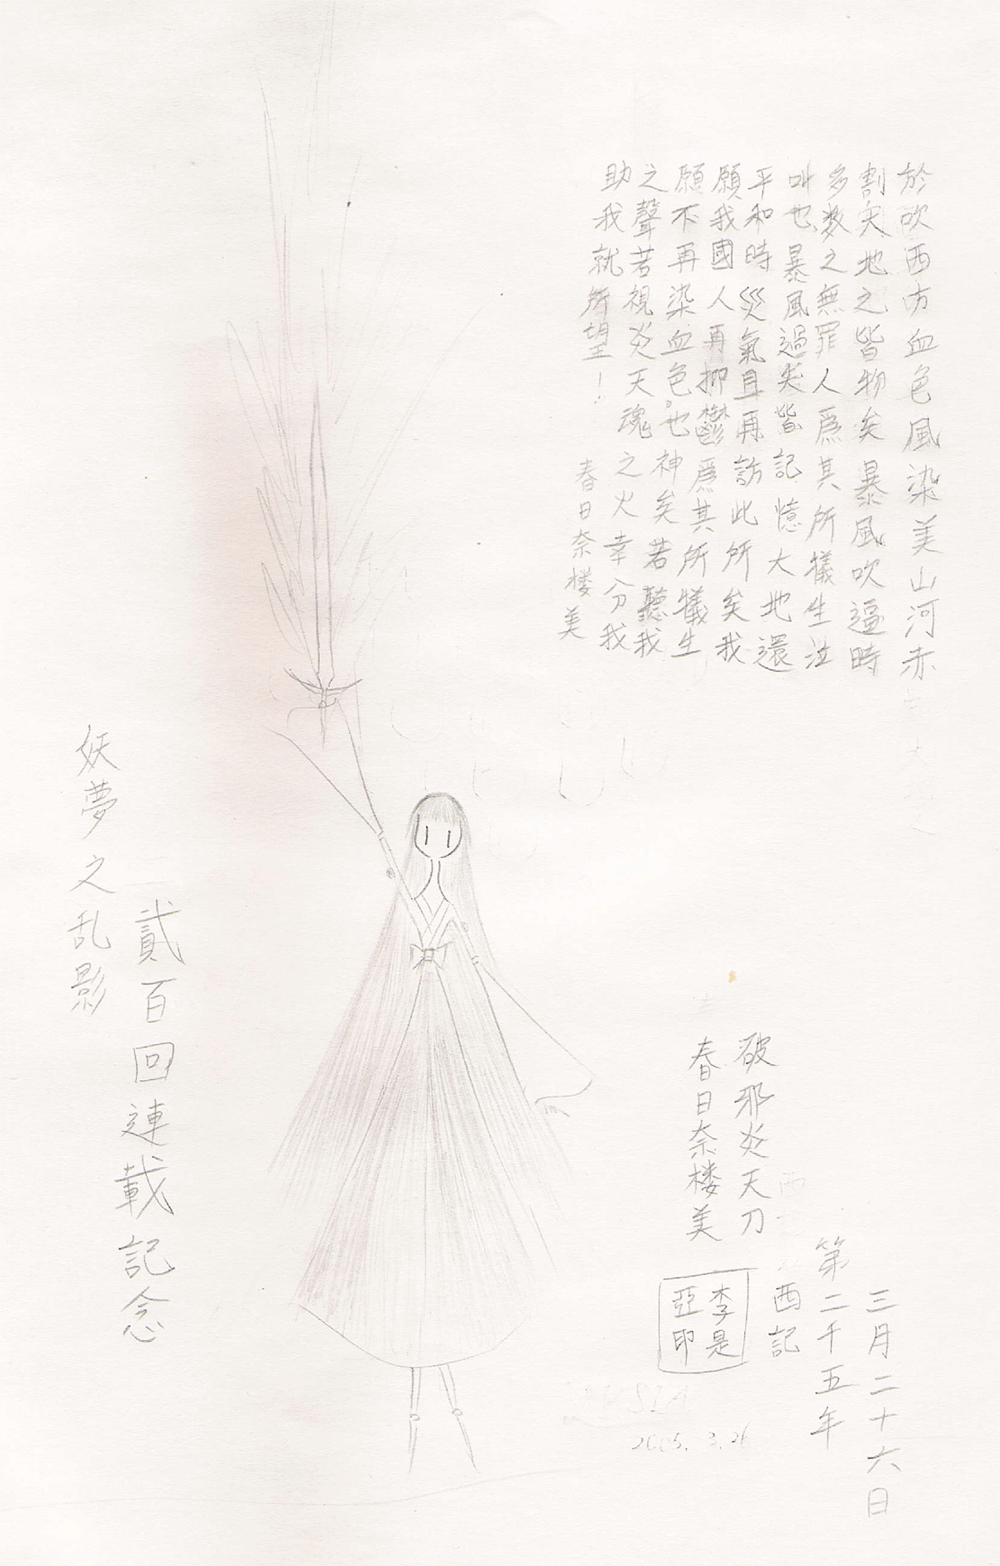 於吹西方血色風染美山河赤
割天地之皆物矣暴風吹逼時
多数之無罪人爲其所犠生泣
叫也暴風過矣皆記憶大地還
平和時災氣且再訪此所矣我
願我國人再抑鬱爲其所犠生
願不再染血色。也神矣若聽我
之聲若視炎天魂之火幸分我
助我就所望！
春日奈楼美
妖夢之乱影
貳百回連載記念
破邪炎天刀
春日奈楼美
三月二十六日
第二千五年
西記
李是
亞印
2005. 3. 26